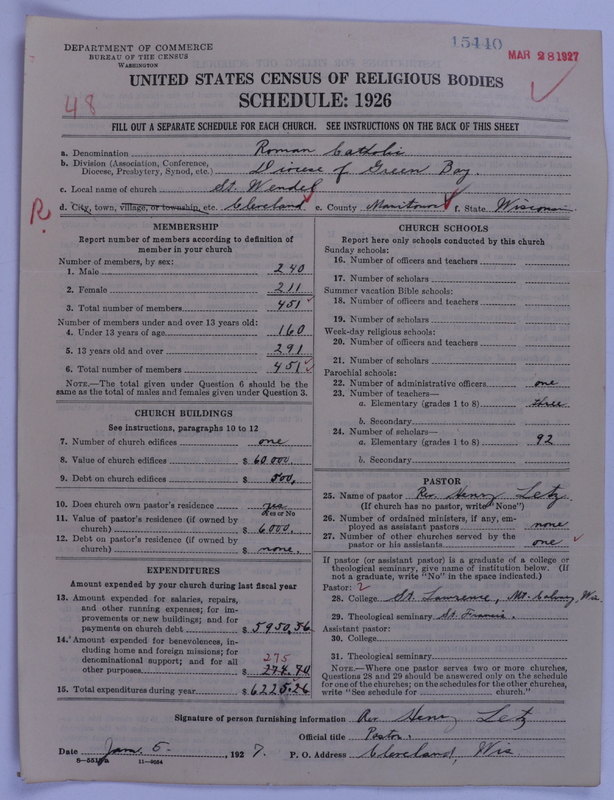 DEPARTMENT OF COMMERCE
BUREAU OF THE CENSUS
WASHINGTON
15440
MAR 28 1927
UNITED STATES CENSUS OF RELIGIOUS BODIES
SCHEDULE: 1926
48
FILL OUT A SEPARATE SCHEDULE FOR EACH CHURCH. SEE INSTRUCTIONS ON THE BACK OF THIS SHEET
a. Denomination Roman Catholic
b. Division (Association, Conference, Diocese, Presbytery, Synod, etc.) Diocese of Green Bay
c. Local name of church St. Wendel
R. d. City, town, village, or township, etc. Cleveland e. County Manitowoc f. State Wisconsin
MEMBERSHIP
Report number of members according to definition of
member in your church
Number of members, by sex:
1. Male 240
2. Female 211
3. Total number of members 451
Number of members under and over 13 years old:
4. Under 13 years of age 160
5. 13 years old and over 291
6. Total number of members 451
NOTE.—The total given under Question 6 should be the
same as the total of males and females given under Question 3.
CHURCH BUILDINGS
See instructions, paragraphs 10 to 12
7. Number of church edifices one
8. Value of church edifices $ 60,000.
9. Debt on church edifices $ 500.
10. Does church own pastor's residence? yes
Yes or No
11. Value of pastor's residence (if owned by
church) $ 6000.
12. Debt on pastor's residence (if owned by
church) $ none.
EXPENDITURES
Amount expended by your church during last fiscal year
13. Amount expended for salaries, repairs,
and other running expenses; for im-
provements or new buildings; and for
payments on church debt $ 5950.56
14. Amount expended for benevolences, in-
cluding home and foreign missions; for
denominational support; and for all
275
other purposes $ 274.70
15. Total expenditures during year $ 6225.26
CHURCH SCHOOLS
Report here only schools conducted by this church
Sunday schools:
16. Number of officers and teachers
17. Number of scholars
Summer vacation Bible schools:
18. Number of officers and teachers
19. Number of scholars
Week-day religious schools:
20. Number of officers and teachers
21. Number of scholars
Parochial schools:
22. Number of administrative officers one
23. Number of teachers—
a. Elementary (grades 1 to 8) three
b. Secondary
24. Number of scholars—
a. Elementary (grades 1 to 8) 92
b. Secondary
PASTOR
25. Name of pastor Rev. Henry Letz
(If church has no pastor, write "None")
26. Number of ordained ministers, if any, em-
ployed as assistant pastors none
27. Number of other churches served by the
pastor or his assistants one
If pastor (or assistant pastor) is a graduate of a college or
theological seminary, give name of institution below. (If
not a graduate, write "No" in the space indicated.)
Pastor: 2
28. College St. Lawrence, Mt. Calvary, Wis.
29. Theological seminary St. Francis.
Assistant pastor:
30. College
31. Theological seminary
NOTE.—Where one pastor serves two or more churches,
Questions 28 and 29 should be answered only on the schedule
for one of the churches; on the schedules for the other churches,
write "See schedule for church."
Signature of person furnishing information Rev. Henry Letz
Official title Pastor.
Date Jan. 5. 1927. P. O. Address Cleveland, Wis.
11—9264